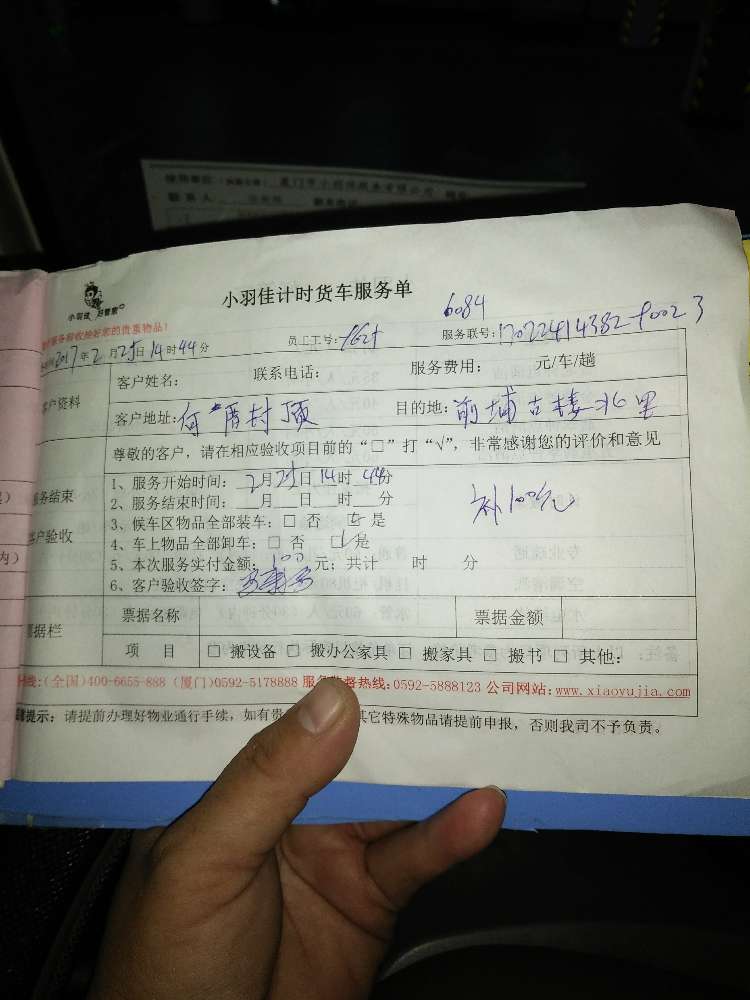 小羽佳计时货车服务单
6084
服务联号：17022414382-90023
好的贵重物品！
2017年2月25日14时44分
员工工号：
客户姓名： 联系电话： 服务费用： 元/车/趟
客户资料
客户地址：何厝村顶 目的地：前埔古楼北里
尊敬的客户，请在相应验收项目前的“□”打“√”，非常感谢您的评价和意见
服务结束
客户验收
1、服务开始时间：2月25日14时44分
2、服务结束时间：__月__日__时__分
补100元
3、候车区物品全部装车：□ 否 □ 是
4、车上物品全部卸车：□ 否 □ 是
5、本次服务实付金额：100元；共计 时 分
6、客户验收签字：
票据栏
票据名称 票据金额
项 目 □ 搬设备 □ 搬办公家具 □ 搬家具 □ 搬书 □ 其他：
热线：(全国)400-6655-888 (厦门)0592-5178888 服务监督热线：0592-5888123 公司网站：www.xiaoyujia.com
提示：请提前办理好物业通行手续，如有贵 其它特殊物品请提前申报，否则我司不予负责。